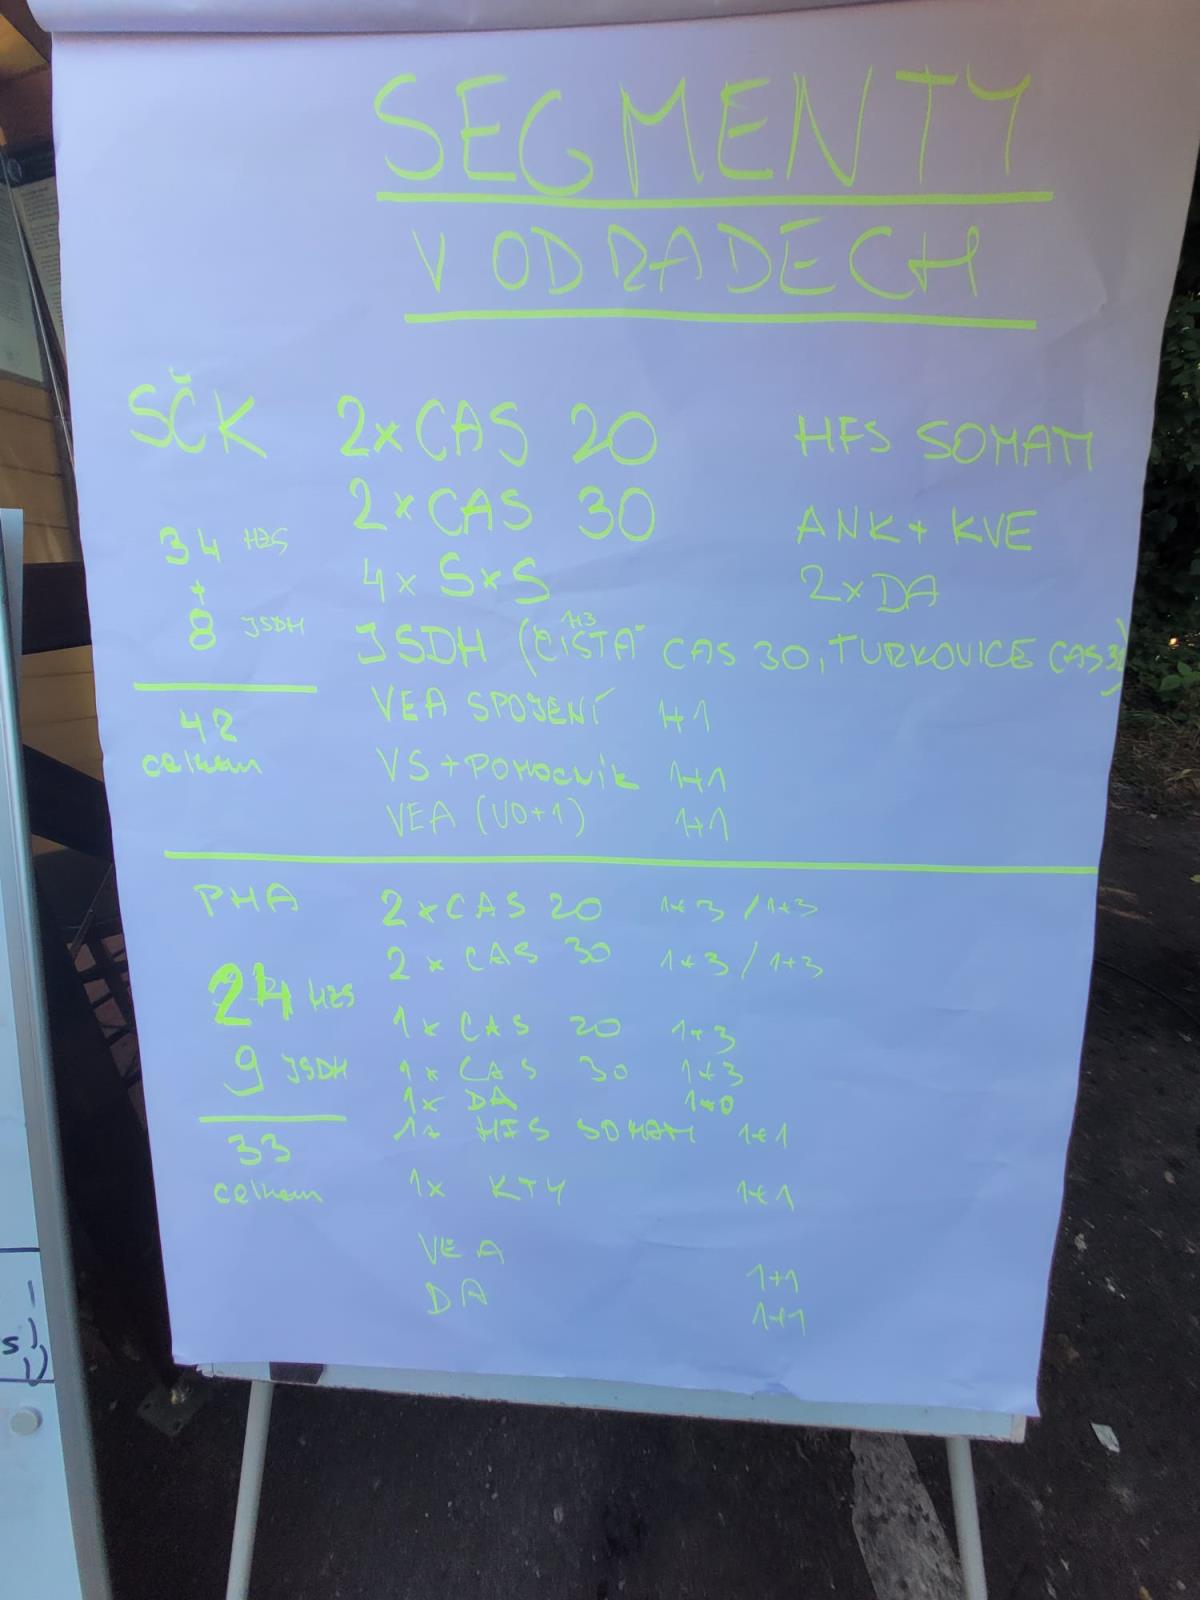 SEGMENTY
V ODRADECH
SČK
34 HZS
+
8 JSDH
42
celkem
2x CAS 20
2x CAS 30
4x SxS
JSDH (ČISTÁ 1+3 CAS 30, TURKOVICE CAS 32)
VEA SPOJENÍ 1+1
VS + POMOCNÍK 1+1
VEA (VO+1) 1+1
HFS SOMATI
ANK + KVE
2x DA
PHA
24 HZS
9 JSDH
33
celkem
2x CAS 20 1+3 / 1+3
2x CAS 30 1+3 / 1+3
1x CAS 20 1+3
1x CAS 30 1+3
1x DA 1+0
1x HFS SOMATI 1+1
1x KTY 1+1
VEA 1+1
DA 1+1